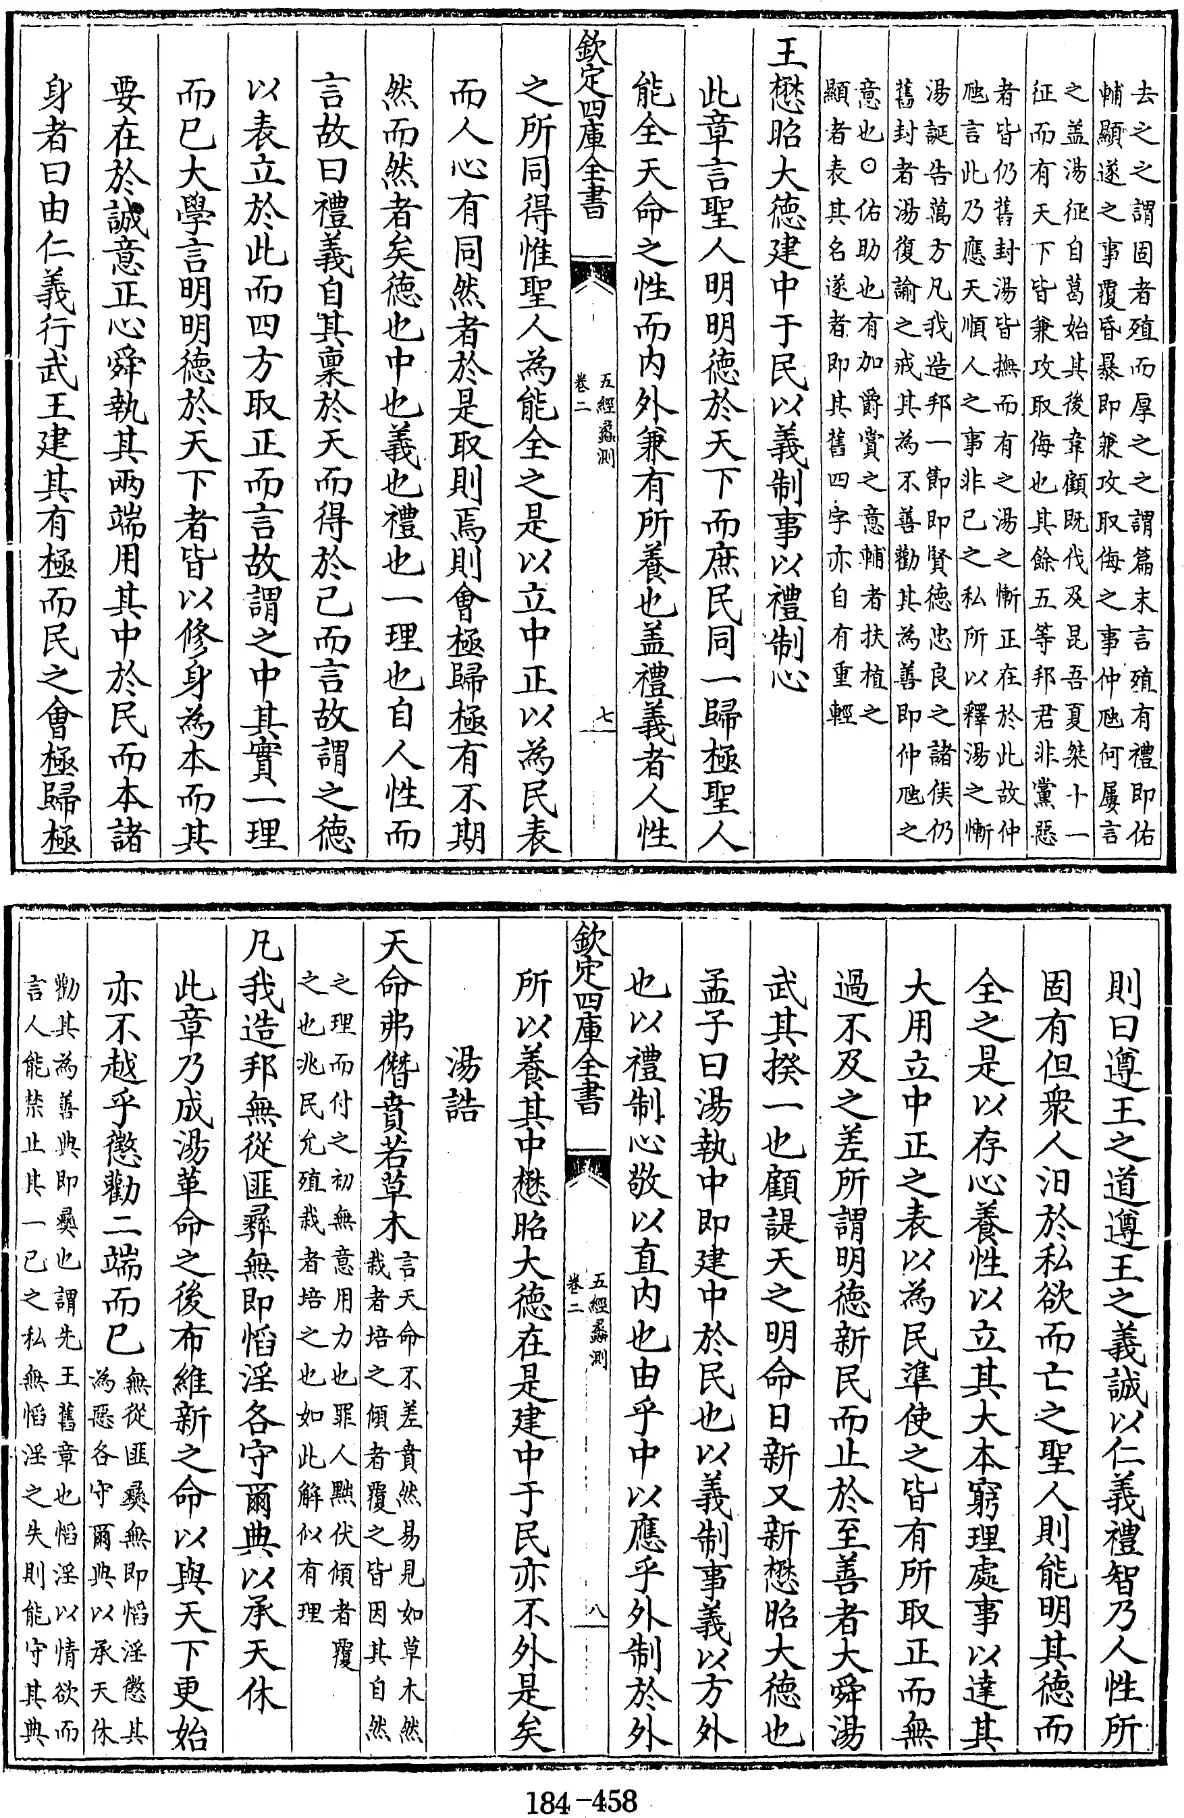 去之之謂固者殖而厚之之謂篇末言殖有禮即佑
輔顯遂之事覆昏暴即兼攻取侮之事仲虺何屢言
之盖湯征自葛始其後韋顧既伐及昆吾夏桀十一
征而有天下皆兼攻取侮也其餘五等邦君非黨惡
者皆仍舊封湯皆撫而有之湯之慚正在於此故仲
虺言此乃應天順人之事非己之私所以釋湯之慚
湯誕告萬方凡我造邦一節即賢德忠良之諸侯仍
舊封者湯復諭之戒其為不善勸其為善即仲虺之
意也⊙佑助也有加爵賞之意輔者扶植之
顯者表其名遂者即其舊四字亦自有重輕
王懋昭大德建中于民以義制事以禮制心
此章言聖人明明德於天下而庶民同一歸極聖人
能全天命之性而内外兼有所養也盖禮義者人性
欽定四庫全書
五經蠡測
卷二
七
之所同得惟聖人為能全之是以立中正以為民表
而人心有同然者於是取則焉則會極歸極有不期
然而然者矣德也中也義也禮也一理也自人性而
言故曰禮義自其稟於天而得於己而言故謂之德
以表立於此而四方取正而言故謂之中其實一理
而已大學言明明德於天下者皆以修身為本而其
要在於誠意正心舜執其兩端用其中於民而本諸
身者曰由仁義行武王建其有極而民之會極歸極
則曰遵王之道遵王之義誠以仁義禮智乃人性所
固有但衆人汩於私欲而亡之聖人則能明其德而
全之是以存心養性以立其大本窮理處事以達其
大用立中正之表以為民準使之皆有所取正而無
過不及之差所謂明德新民而止於至善者大舜湯
武其揆一也顧諟天之明命日新又新懋昭大德也
孟子曰湯執中即建中於民也以義制事義以方外
也以禮制心敬以直内也由乎中以應乎外制於外
欽定四庫全書
五經蠡測
卷二
八
所以養其中懋昭大德在是建中于民亦不外是矣
湯誥
天命弗僭賁若草木言天命不差賁然易見如草木然
栽者培之傾者覆之皆因其自然
之理而付之初無意用力也罪人黜伏傾者覆
之也兆民允殖栽者培之也如此解似有理
凡我造邦無從匪彛無即慆淫各守爾典以承天休
此章乃成湯革命之後布維新之命以與天下更始
亦不越乎懲勸二端而已無從匪彛無即慆淫懲其
為惡各守爾典以承天休
勸其為善典即彛也謂先王舊章也慆淫以情欲而
言人能禁止其一己之私無慆淫之失則能守其典
184-458